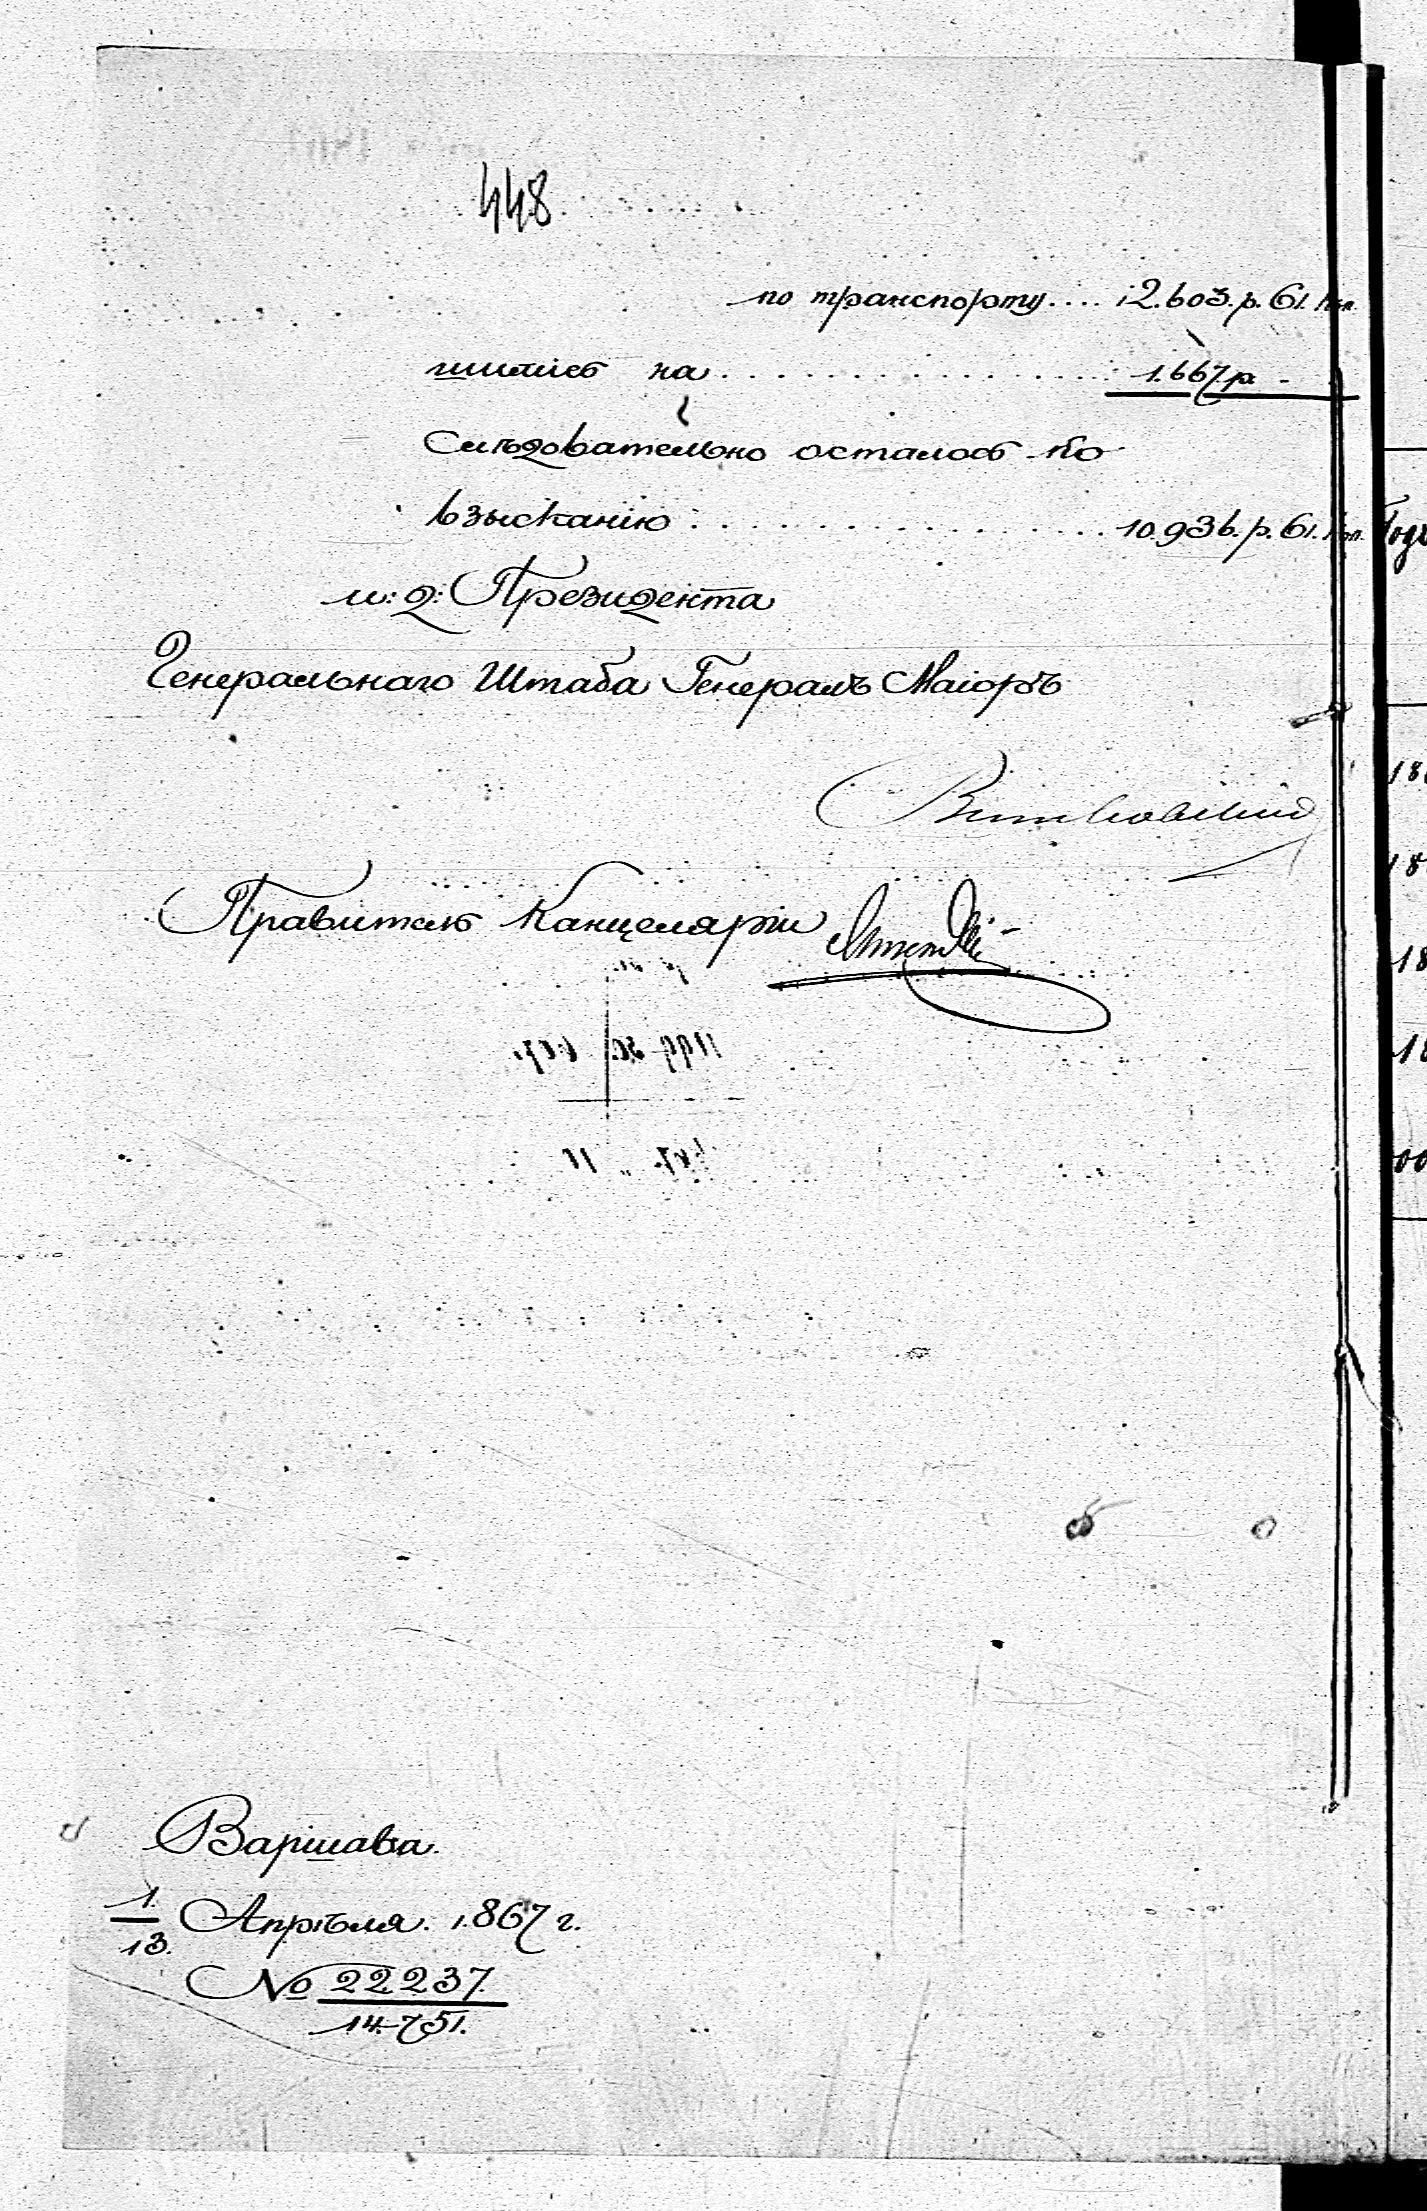 448
по транспорту.... 12.603.р. 61. коп.
на .................. 1.667.р -
Слѣдовательно осталось ко
взысканію ................ 10.936.р. 61. коп.
и: д: Президента
Генеральнаго Штаба Генералъ Маіоръ
Витковскій
Правитель Канцеляріи
Варшава.
1.
13. Апрѣля. 1.867 г.
№ 22237.
14.751.